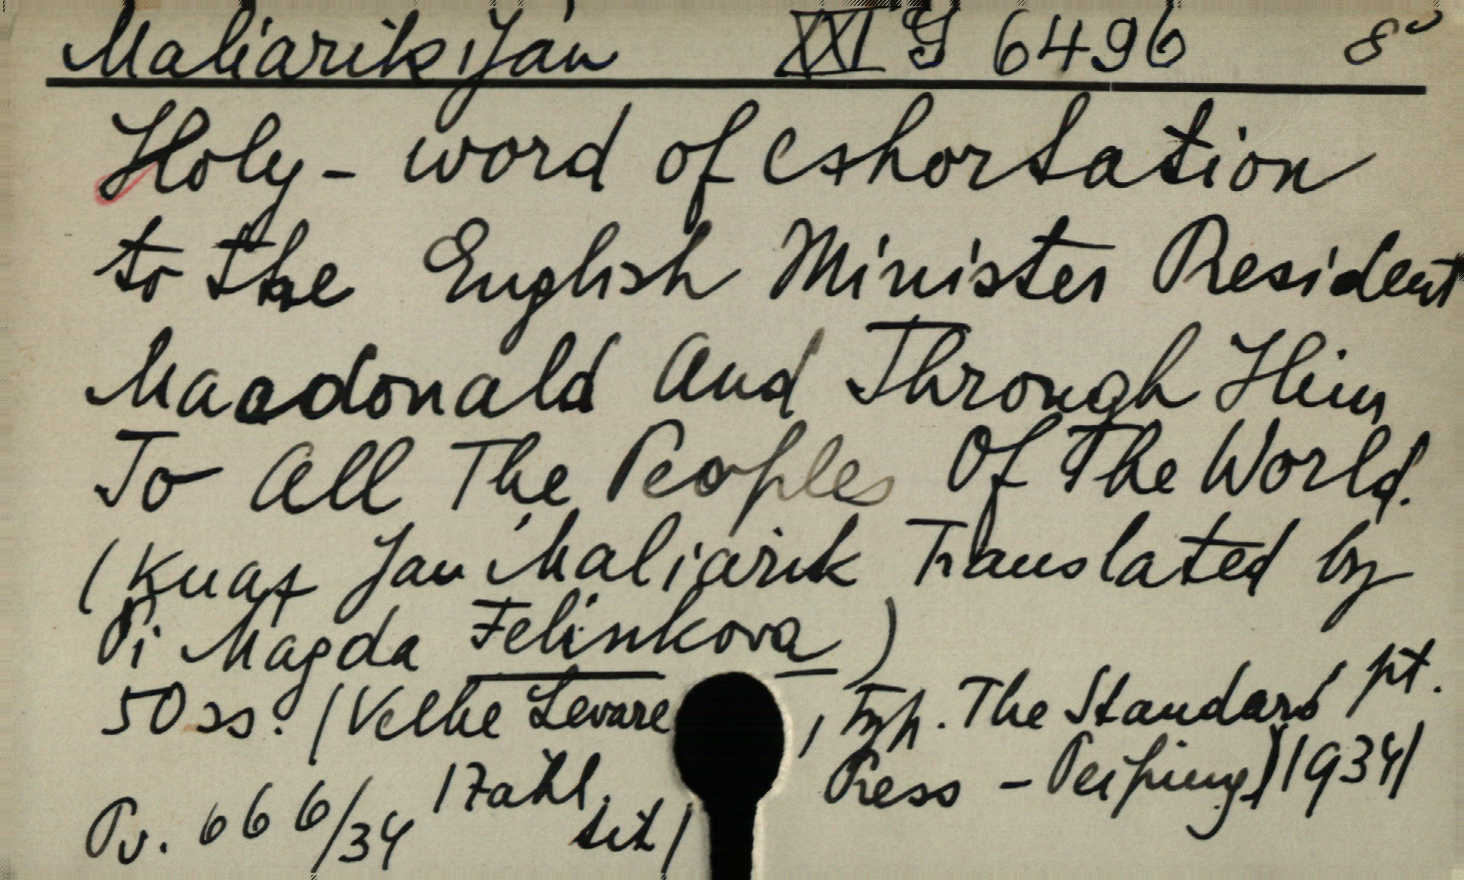 Maliarik, Ján XXI G 6496 8°
Holy - word of Exhortation
to the English Minister President
Macdonald And Through Him
To All The Peoples Of The World.
(Knaz Jan Maliarik Translated by
Pi Magda Felinkova)
50 ss. (Velke Levare, Typ. The Standard pt.
Press - Peiping) |1934|
Pv. 666/34 |Zahl.
tit|